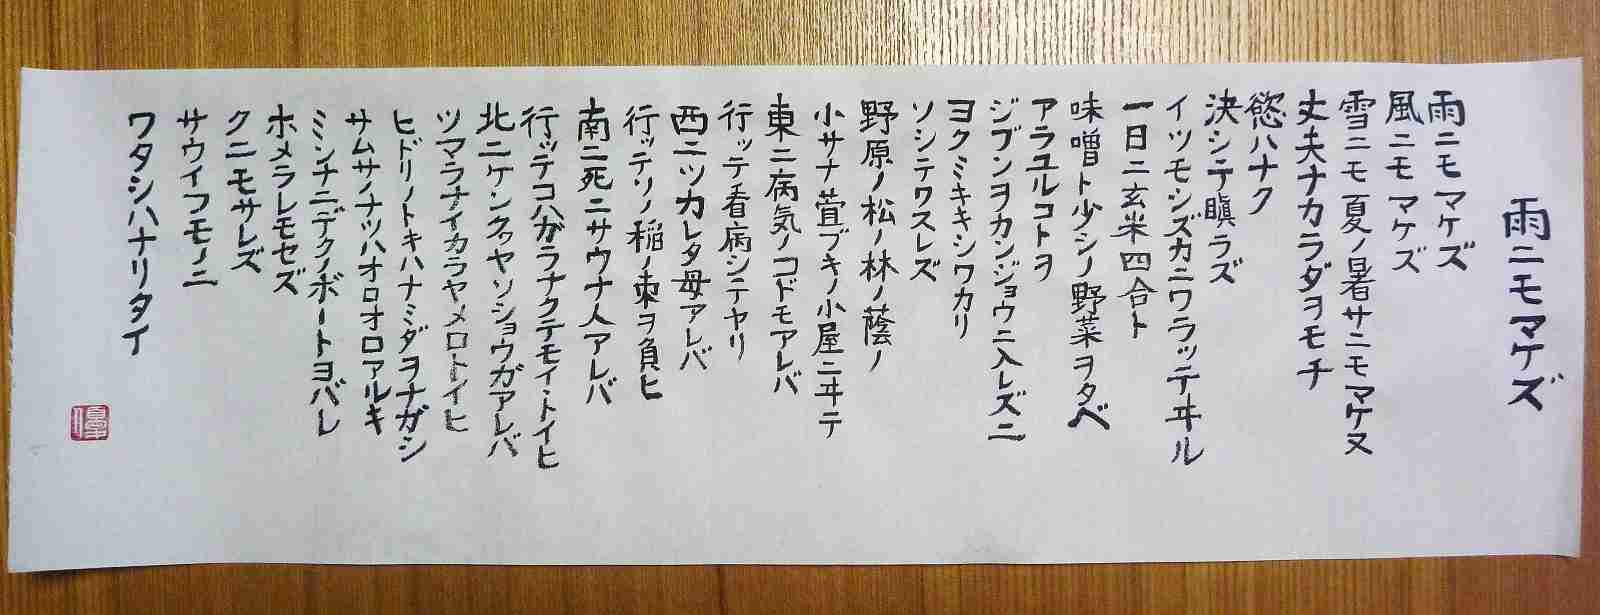 雨ニモマケズ
雨ニモマケズ
風ニモマケズ
雪ニモ夏ノ暑サニモマケヌ
丈夫ナカラダヲモチ
慾ハナク
決シテ瞋ラズ
イツモシズカニワラッテヰル
一日ニ玄米四合ト
味噌ト少シノ野菜ヲタベ
アラユルコトヲ
ジブンヲカンジョウニ入レズニ
ヨクミキキシワカリ
ソシテワスレズ
野原ノ松ノ林ノ蔭ノ
小サナ萱ブキノ小屋ニヰテ
東ニ病気ノコドモアレバ
行ッテ看病シテヤリ
西ニツカレタ母アレバ
行ッテソノ稲ノ束ヲ負ヒ
南ニ死ニサウナ人アレバ
行ッテコハガラナクテモイヽトイヒ
北ニケンクヮヤソショウガアレバ
ツマラナイカラヤメロトイヒ
ヒドリノトキハナミダヲナガシ
サムサノナツハオロオロアルキ
ミンナニデクノボートヨバレ
ホメラレモセズ
クニモサレズ
サウイフモノニ
ワタシハナリタイ